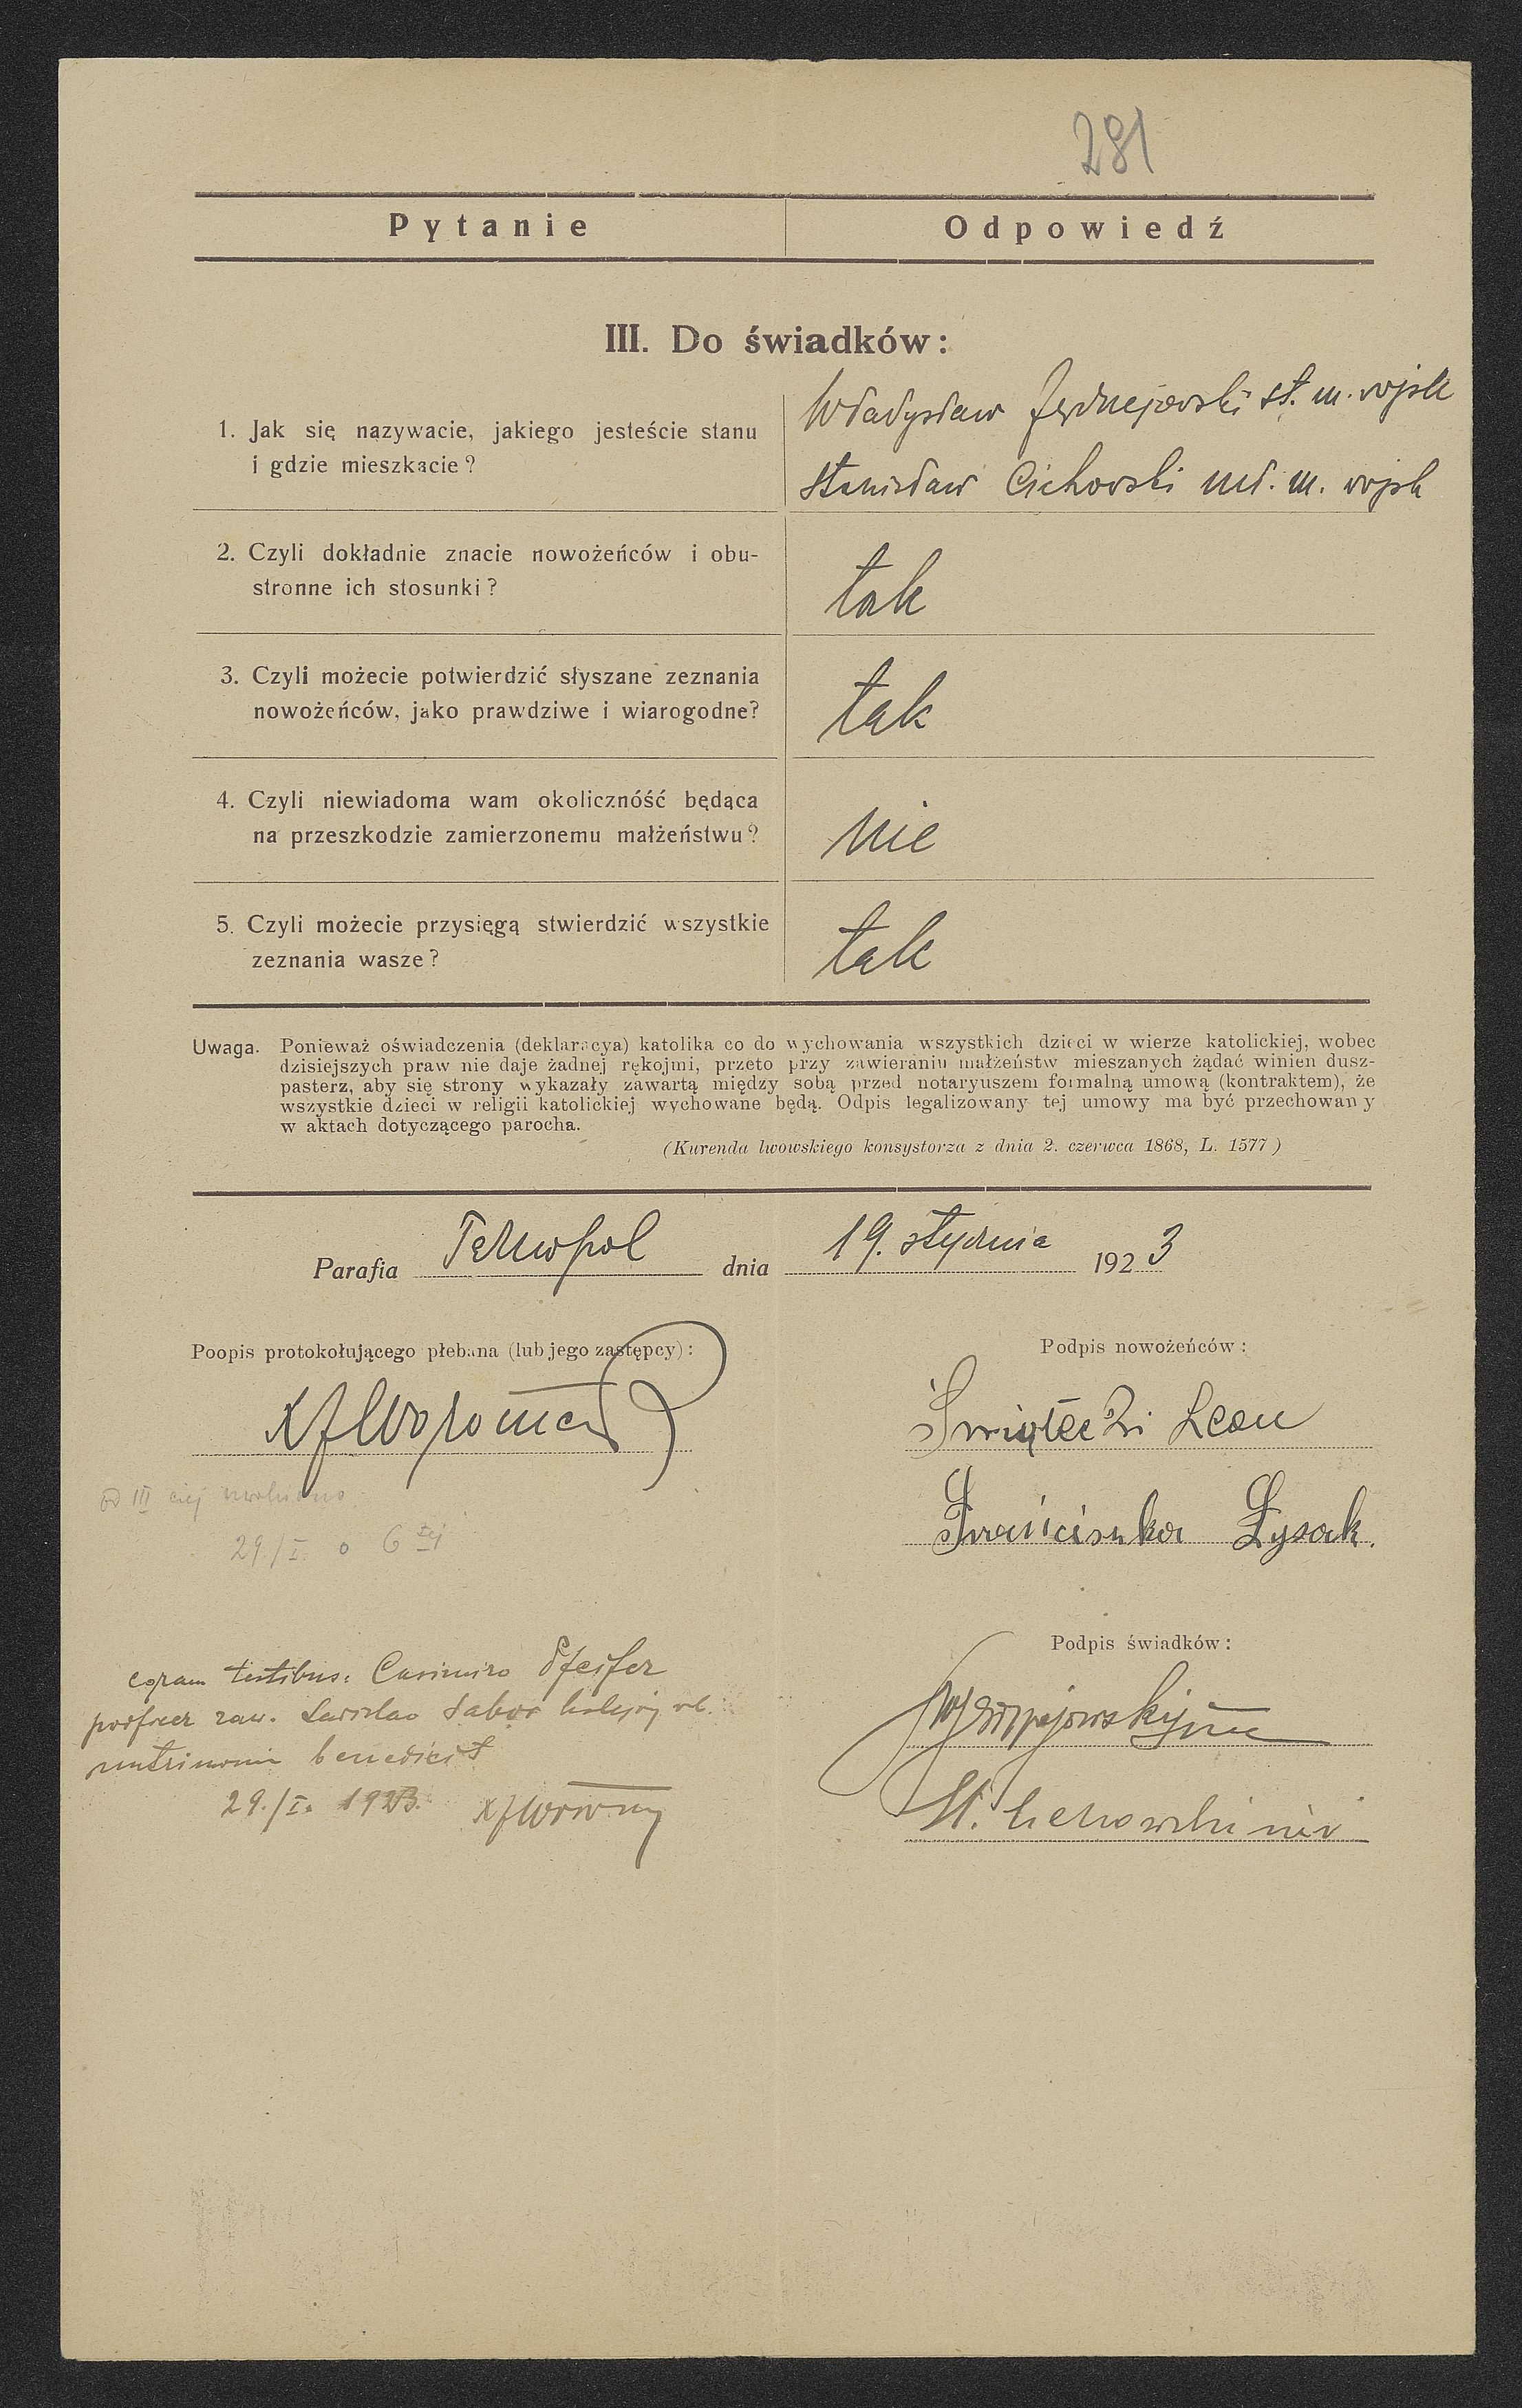 281
Pytanie Odpowiedź
III. Do świadków:
1. Jak się nazywacie, jakiego jesteście stanu
i gdzie mieszkacie?
Władysław st. m. wojsk
Stanisław Cichowski mł. m. wojsk
2. Czyli dokładnie znacie nowożeńców i obu-
stronne ich stosunki?
tak
3. Czyli możecie potwierdzić słyszane zeznania
nowożeńców, jako prawdziwe i wiarogodne?
tak
4. Czyli niewiadoma wam okolicznóść będąca
na przeszkodzie zamierzonemu małżeństwu?
nie
5. Czyli możecie przysięgą stwierdzić wszystkie
zeznania wasze?
tak
Uwaga. Ponieważ oświadczenia (deklaracya) katolika co do wychowania wszystkich dzieci w wierze katolickiej, wobec
dzisiejszych praw nie daje żadnej rękojmi, przeto przy zawieraniu małżeństw mieszanych żądać winien dusz-
pasterz, aby się strony wykazały zawartą między sobą przed notaryuszem formalną umową (kontraktem), że
wszystkie dzieci w religii katolickiej wychowane będą. Odpis legalizowany tej umowy ma być przechowany
w aktach dotyczącego parocha.
(Kurenda lwowskiego konsystorza z dnia 2. czerwca 1868, L. 1577)
Parafia Tarnopol dnia 19. stycznia 1923
Poopis protokołującego plebana (lub jego zastępcy):
Podpis nowożeńców:
Świątecki Leon
Franciszka Łysak.
od III ciej uwolniono
29/I. o 6 tej
Podpis świadków:
coram testibus: Casimiro Pfeifer
zaw. Ladislao
benedixit
29./I. 1923.
St. Cichowski